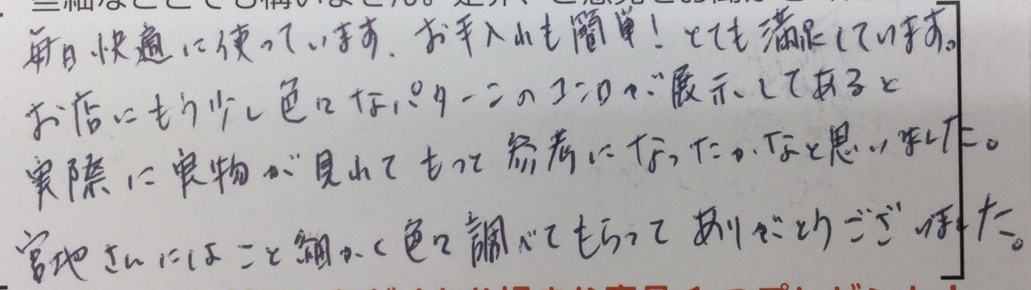 毎日快適に使っています。お手入れも簡単！とても満足しています。
お店にもう少し色々なパターンのコンロが展示してあると
実際に実物が見れてもっと参考になったかなと思いました。
宮地さんにはこと細かく色々調べてもらってありがとうございました。